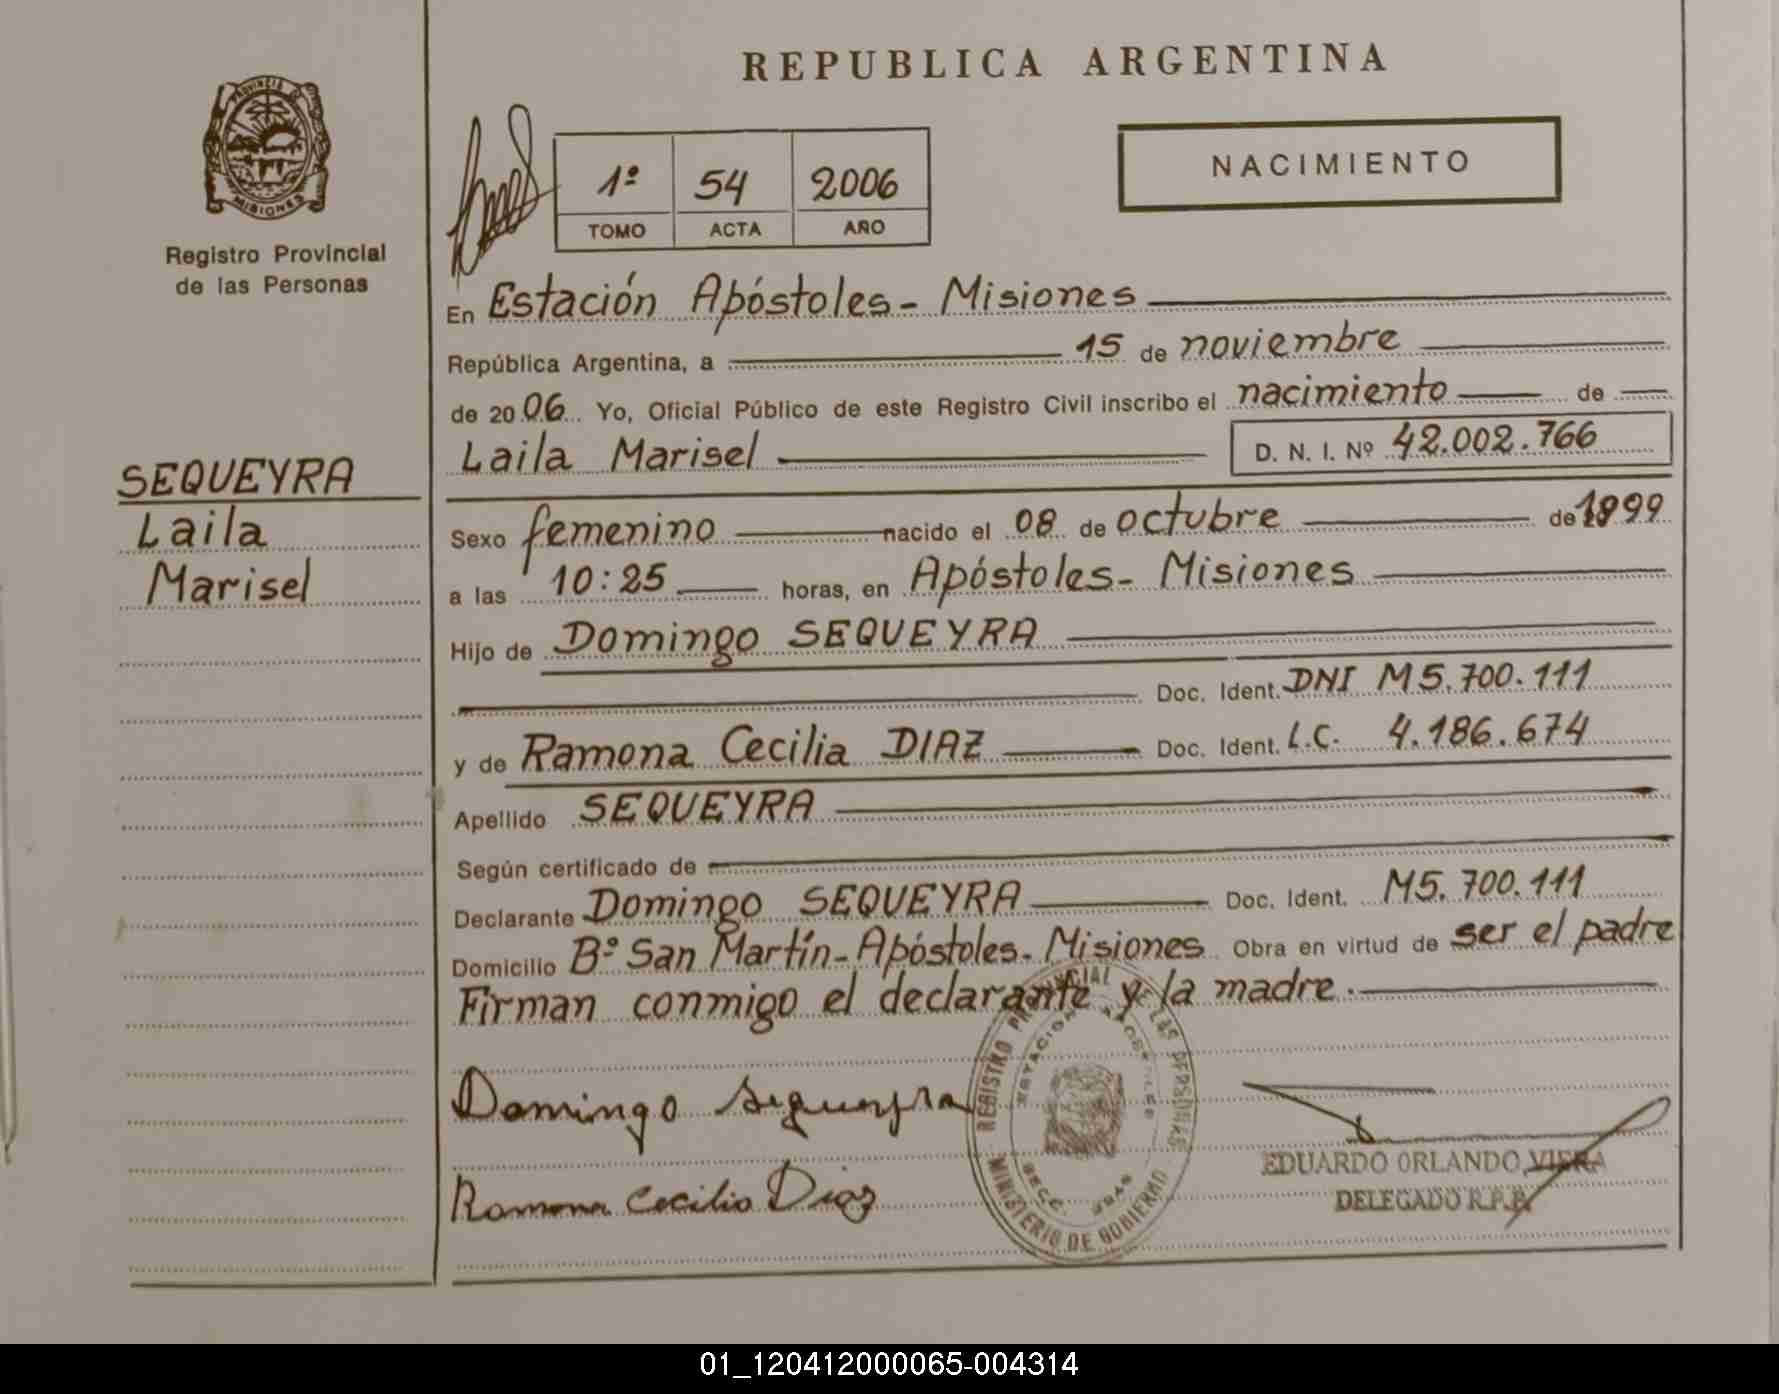 REPUBLICA ARGENTINA
PROVINCIA DE
MISIONES
Registro Provincial
de las Personas
1º 54 2006
TOMO ACTA AÑO
NACIMIENTO
En Estación Apóstoles - Misiones
República Argentina, a 15 de noviembre
de 2006 Yo, Oficial Público de este Registro Civil inscribo el nacimiento de
Laila Marisel D. N. I. Nº 42.002.766
SEQUEYRA
Laila
Marisel
Sexo femenino nacido el 08 de octubre de 1999
a las 10:25 horas, en Apóstoles - Misiones
Hijo de Domingo SEQUEYRA
Doc. Ident. DNI M5.700.111
y de Ramona Cecilia DIAZ Doc. Ident. L.C. 4.186.674
Apellido SEQUEYRA
Según certificado de
Declarante Domingo SEQUEYRA Doc. Ident. M5.700.111
Domicilio Bº San Martín - Apóstoles - Misiones Obra en virtud de ser el padre
Firman conmigo el declarante y la madre.
Domingo Sequeyra
Ramona Cecilia Diaz
REGISTRO PROVINCIAL DE LAS PERSONAS
MINISTERIO DE GOBIERNO
EDUARDO ORLANDO VIERA
DELEGADO R.P.P.
01_120412000065-004314